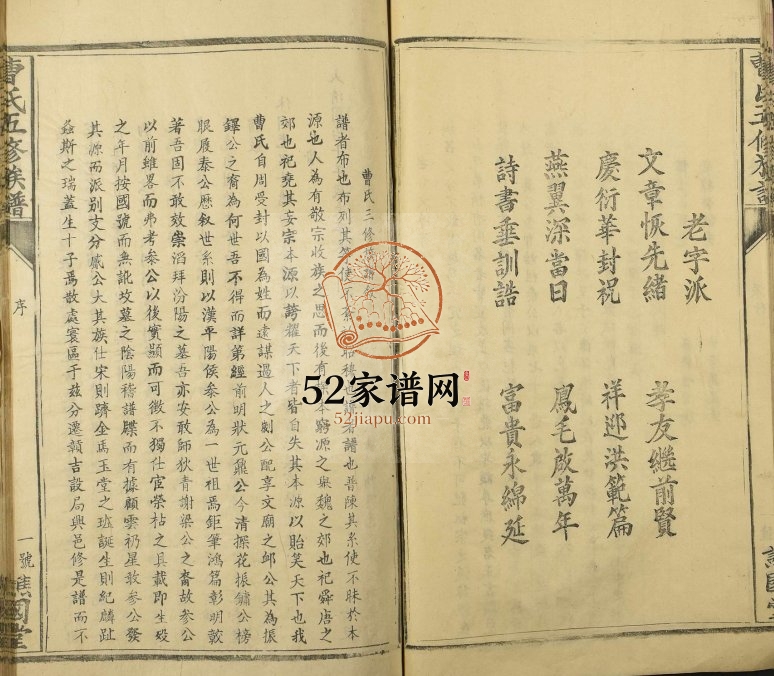 老字派
文章恢先緒 孝友繼前賢
慶衍華封祝 祥迎洪範篇
燕翼深當日 鳳毛啟萬年
詩書垂訓誥 富貴永綿延
曹氏五修族譜
序
一號
譙國堂
曹氏三修
譜者布也布列其 使不 昭穆 譜也普陳其系使不昧於本
源也人為有敬宗收族之思而後有 本窮源之舉魏之郊也祀舜唐之
郊也祀堯其妄宗本源以誇耀天下者皆自失其本源以貽笑天下也我
曹氏自周受封以國為姓而遠謀過人之劌公配享文廟之卹公其為振
鐸公之裔為何世吾不得而詳第經前明狀元鼐公今清探花振鏞公榜
眼履泰公歷叙世系則以漢平陽侯參公為一世祖焉鉅筆鴻篇彰明較
著吾固不敢效崇滔拜汾陽之墓吾亦安敢師狄青謝梁公之裔故參公
以前雖畧而弗考參公以後實顯而可徵不獨仕宦榮枯之具載即生歿
之年月按國號而無訛坟墓之陰陽稽譜牒而有據顧雲礽星散參公發
其源而派別支分 公大其族仕宋則躋金馬玉堂之班誕生則紀麟趾
螽斯之瑞蓋生十子焉散處寰區于茲分遷贛吉設局興邑修是譜而不
52家谱网
52jiapu.com